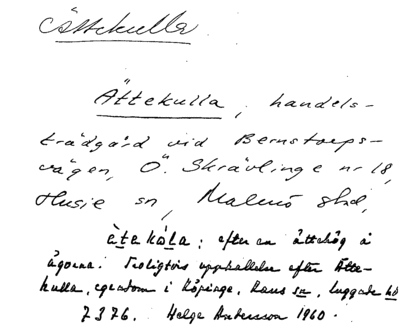 Ättekulla
Ättekulla, handels-
trädgård vid Bernstorps-
vägen, Ö. Skrävlinge nr 18,
Husie sn, Malmö stad,
ȧtekȧla: efter en ättehög å
ägorna. Troligtvis uppkallelse efter Ätte-
kulla, egendom i Köpinge, Raus sn, Luggude hd
7376. Helge Andersson 1960.